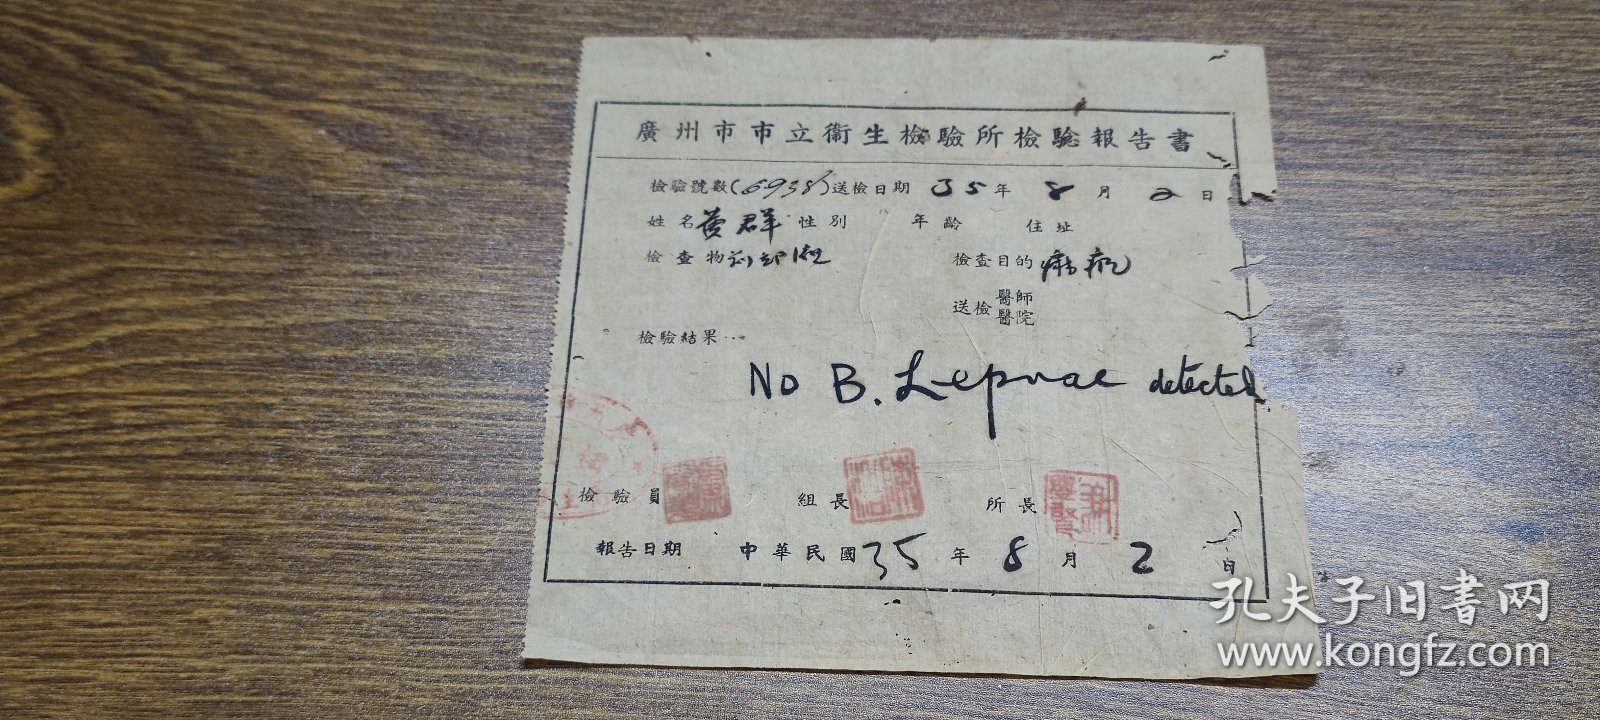 廣州市市立衞生檢驗所檢驗報告書
檢驗號數(6938)送檢日期 35年 8月 2日
姓名 群 性別 年齡 住址
檢查物 檢查目的 痲瘋
送檢醫師
醫院
檢驗結果
No B. Leprae detected
檢驗員 組長 所長
報告日期 中華民國35年 8月 2日
孔夫子旧书网
www.kongfz.com